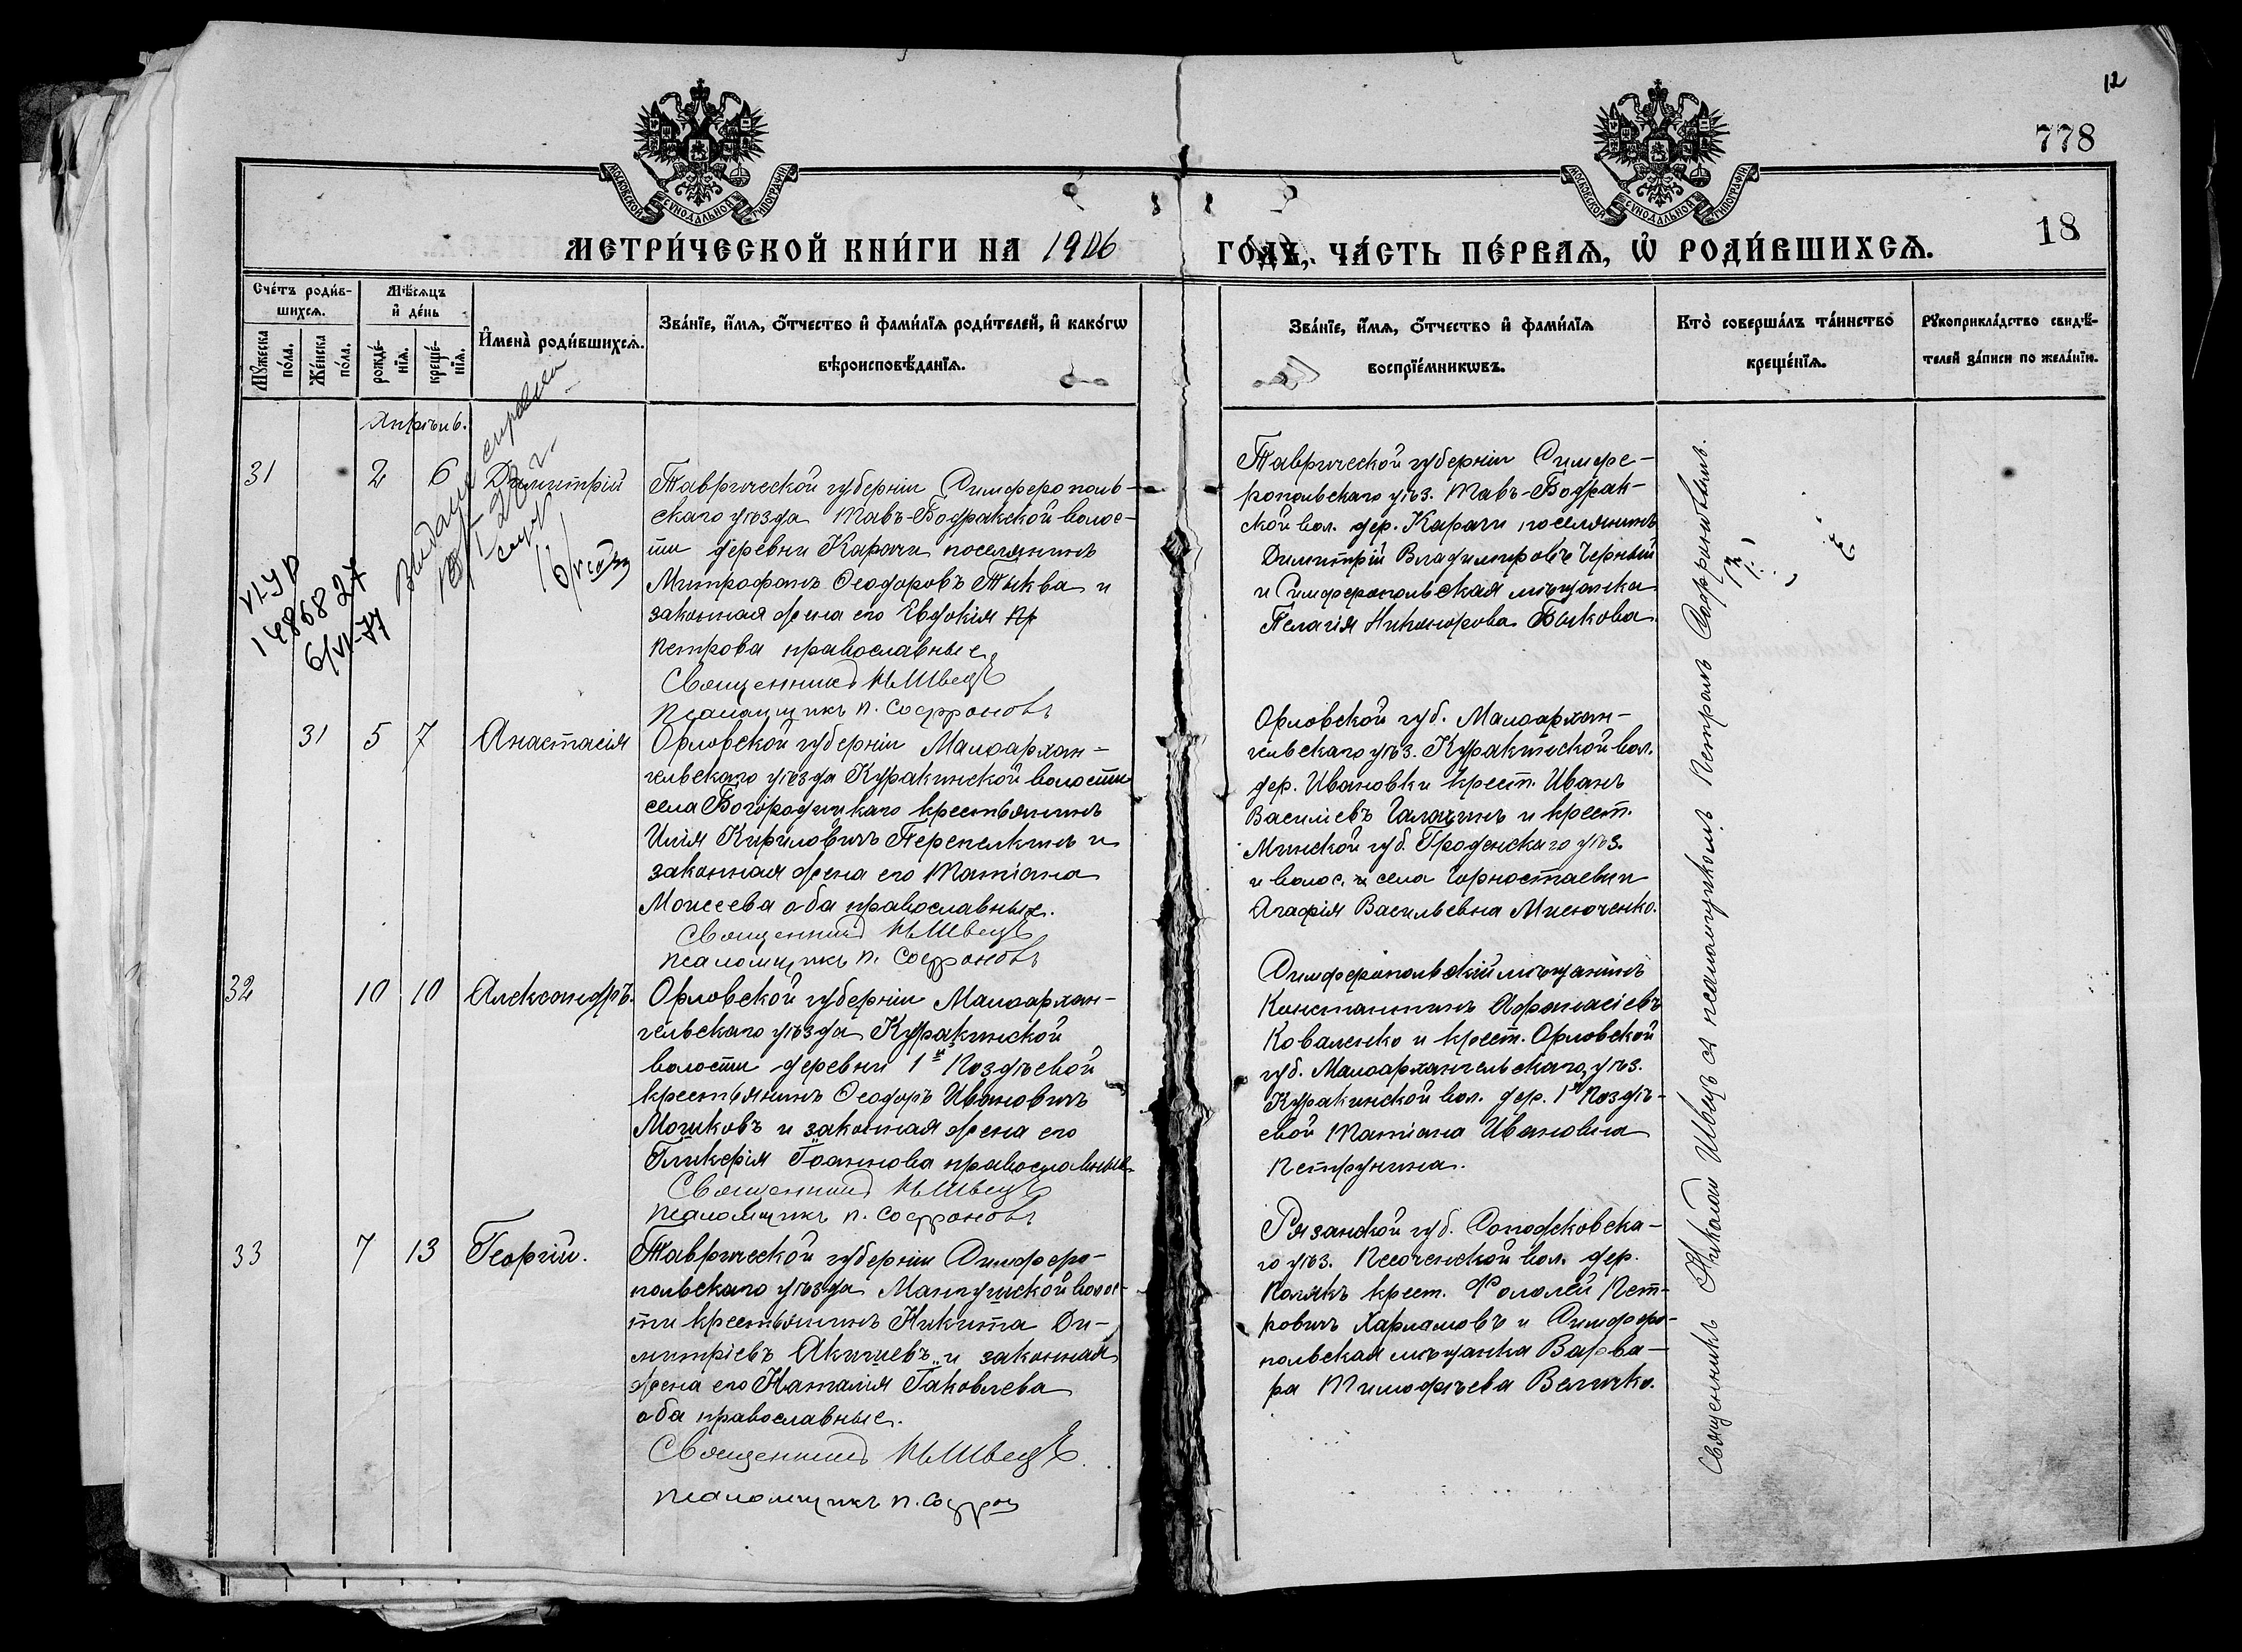 12
778
18
МОСКОВСКОЙ СѴНОДАЛЬНОЙ ТИПОГРАФІИ
МОСКОВСКОЙ СѴНОДАЛЬНОЙ ТИПОГРАФІИ
МЕТРИ́ЧЕСКОЙ КНИ́ГИ НА 1906 ГО́ДЪ, ЧА́СТЬ ПЕ́РВАѦ, Ѡ҆ РОДИ́ВШИХСѦ.
Сче́тъ роди́в-
шихсѧ.
Мѣ́сѧцъ
и҆ де́нь
Мꙋ́жеска
по́ла.
Же́нска
по́ла.
рожде́-
нїѧ.
креще́-
нїѧ.
И҆мена̀ роди́вшихсѧ.
Зва́нїе, и҆́мѧ, ѻ҆́тчество и҆ фами́лїѧ роди́телей, и҆ како́гѡ
вѣроисповѣ́данїѧ.
Зва́нїе, и҆́мѧ, ѻ҆́тчество и҆ фами́лїѧ
воспрїе́мникѡвъ.
Кто̀ соверша́лъ та́инство
креще́нїѧ.
Рꙋкоприкла́дство свидѣ́-
телей за́писи по жела́нїю.
Апрѣль.
31 2 6 Димитрій
Таврической губерніи Симферополь-
скаго уѣзда Тавъ-Бодракской волос-
ти деревни Карачи поселянинъ
Митрофанъ Ѳеодоровъ Тыква и
законная жена его Евдокія Пр
Петрова православные.
Священникъ Н. Швецъ
Псаломщикъ П. Софроновъ
Таврической губерніи Симфе-
ропольскаго уѣз. Тавъ-Бодрак-
ской вол. дер. Карачи поселянинъ
Димитрій Владимировъ Черный
и Симферопольская мѣщанка
Пелагія Никанорова Быкова.
Выдана справка
14868 27
6/VI-77
31 5 7 Анастасія
Орловской губерніи Малоархан-
гельскаго уѣзда Куракинской волости
села Богородицкаго крестьянинъ
Илія Кириловичъ Перепелкинъ и
законная жена его Татіана
Моисеева оба православные.
Священникъ Н. Швецъ
Псаломщикъ П. Софроновъ
Орловской губ. Малоархан-
гельскаго уѣз. Куракинской вол.
дер. Ивановки крест. Иванъ
Василіевъ Галацинъ и крест.
Минской губ. уѣз.
и волос. села Горностаевки
Агафія Васильевна Мисюченко.
32 10 10 Александръ.
Орловской губерніи Малоархан-
гельскаго уѣзда Куракинской
волости деревни 1й Поздѣевой
крестьянинъ Ѳеодоръ Ивановичъ
Мошковъ и законная жена его
Гликерія Іоаннова православные.
Священникъ Н. Швецъ
Псаломщикъ П. Софроновъ
Симферопольскій мѣщанинъ
Константинъ Афанасіевъ
Коваленко и крест. Орловской
губ. Малоархангельскаго уѣз.
Куракинской вол. дер. 1й Поздѣ-
евой Татіана Ивановна
Петрунина.
33 7 13 Георгій.
Таврической губерніи Симферо-
польскаго уѣзда Мангушской волос-
ти крестьянинъ Никита Ди-
митріевъ Акишевъ и законная
жена его Наталія Іаковлева
оба православные.
Священникъ Н. Швецъ.
Псаломщикъ П. Софрон
Рязанской губ. Сапожковска-
го уѣз. Песоченской вол. дер.
Полякъ крест. Фалалей Пет-
ровичъ Харламовъ и Симферо-
польская мѣщанка Варва-
ра Тимофѣева Величко.
Священникъ Николай Швецъ съ псаломщикомъ Петромъ Софроновымъ.